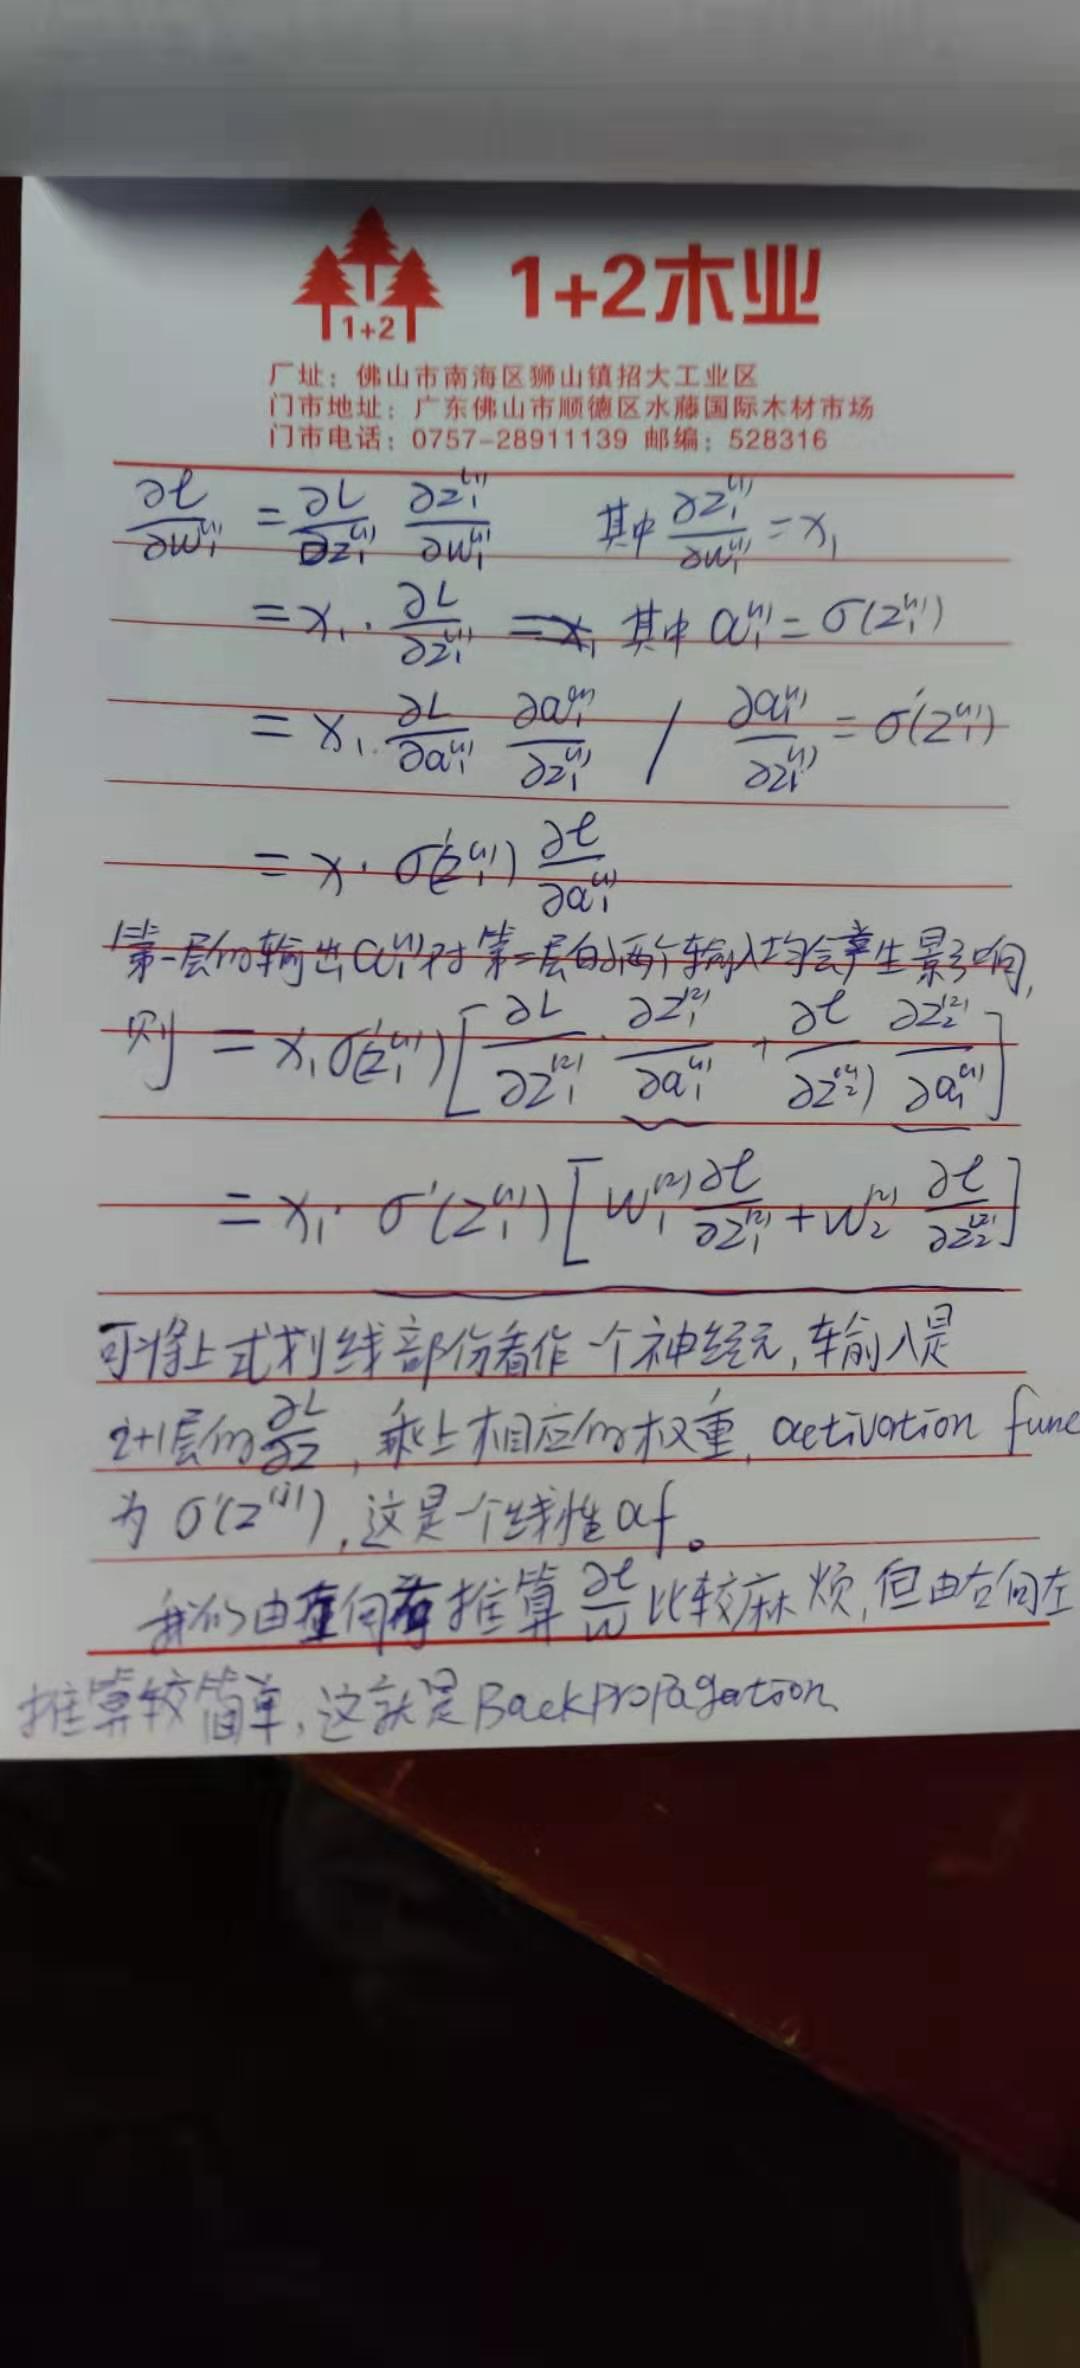 1+2
1+2木业
厂址：佛山市南海区狮山镇招大工业区
门市地址：广东佛山市顺德区水藤国际木材市场
门市电话：0757-28911139 邮编：528316
∂ℓ/∂w₁⁽¹⁾ = ∂L/∂z₁⁽¹⁾ ∂z₁⁽¹⁾/∂w₁⁽¹⁾ 其中 ∂z₁⁽¹⁾/∂w₁⁽¹⁾ = x₁
= x₁· ∂L/∂z₁⁽¹⁾ 其中 a₁⁽¹⁾ = σ(z₁⁽¹⁾)
= x₁· ∂L/∂a₁⁽¹⁾ ∂a₁⁽¹⁾/∂z₁⁽¹⁾ / ∂a₁⁽¹⁾/∂z₁⁽¹⁾ = σ'(z₁⁽¹⁾)
= x· σ'(z₁⁽¹⁾) ∂ℓ/∂a₁⁽¹⁾
第一层的输出a₁⁽¹⁾对第二层的两个输入均会产生影响,
则 = x₁σ'(z₁⁽¹⁾)[∂L/∂z₁⁽²⁾ · ∂z₁⁽²⁾/∂a₁⁽¹⁾ + ∂ℓ/∂z₂⁽²⁾ ∂z₂⁽²⁾/∂a₁⁽¹⁾]
= x₁· σ'(z₁⁽¹⁾)[w₁⁽²⁾ ∂ℓ/∂z₁⁽²⁾ + w₂⁽²⁾ ∂ℓ/∂z₂⁽²⁾]
可将上式划线部份看作一个神经元,输入是
i+1层的∂L/∂z,乘上相应的权重,activation func
为σ'(z⁽ⁱ⁾),这是一个线性af。
我们由左向右推算∂ℓ/w比较麻烦,但由右向左
推算较简单,这就是Backpropagation